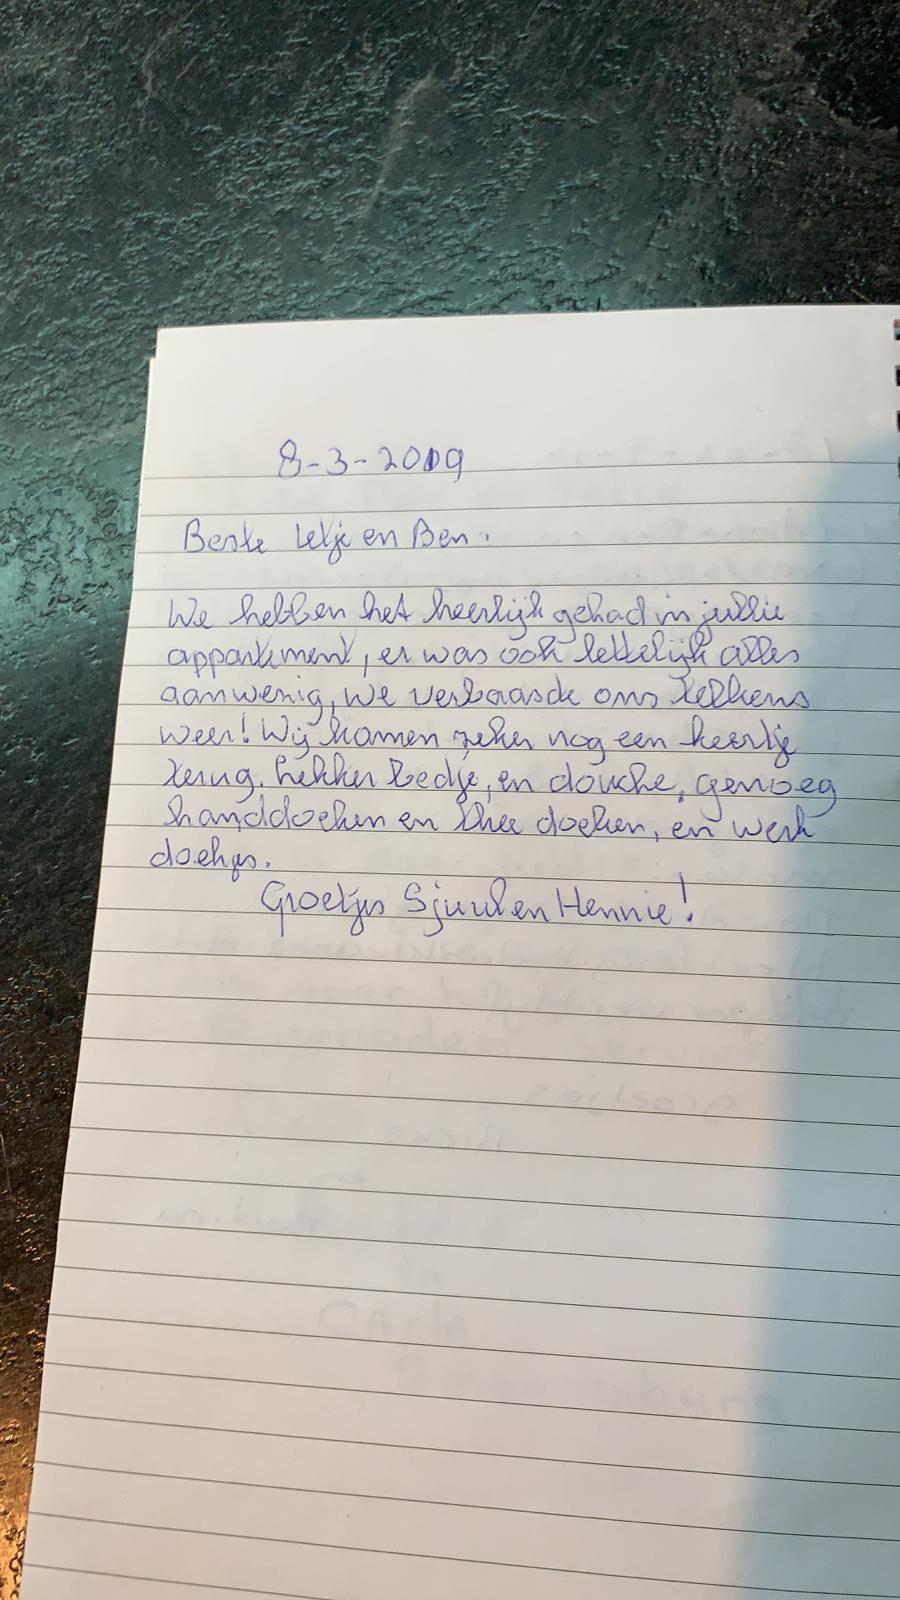 8-3-2019
Beste Letje en Ben.
We hebben het heerlijk gehad in jullie
appartement, er was ook lettelijk alles
aanwenig, we verbaasde ons telkens
weer! Wij komen zeker nog een keertje
terug. Lekker bedje, en douche, genoeg
handdoeken en thee doeken, en werk
doekjes.
Groetjes Sjuul en Hennie!